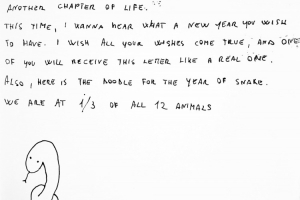 ANOTHER CHAPTER OF LIFE.
THIS TIME, I WANNA HEAR WHAT A NEW YEAR YOU WISH
TO HAVE. I WISH ALL YOUR WISHES COME TRUE, AND ONE
OF YOU WILL RECEIVE THIS LETTER LIKE A REAL ONE.
ALSO, HERE IS THE DOODLE FOR THE YEAR OF SNAKE.
WE ARE AT 1/3 OF ALL 12 ANIMALS